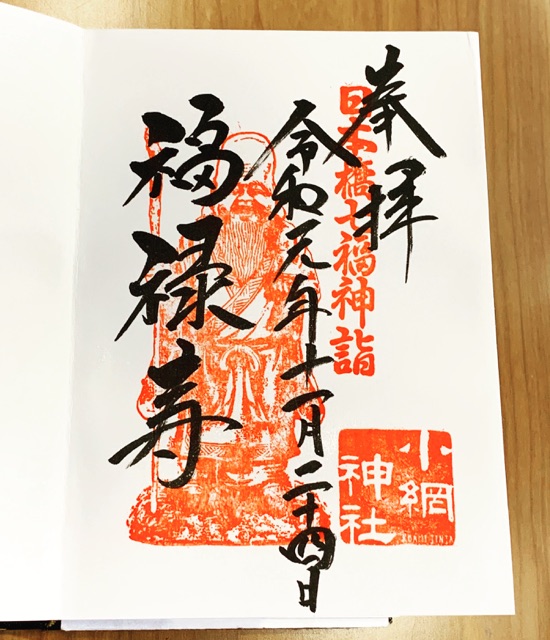 奉拝
日本橋七福神詣
小網
神社
KOAMIJINJA
令和元年十一月二十四日
福禄寿